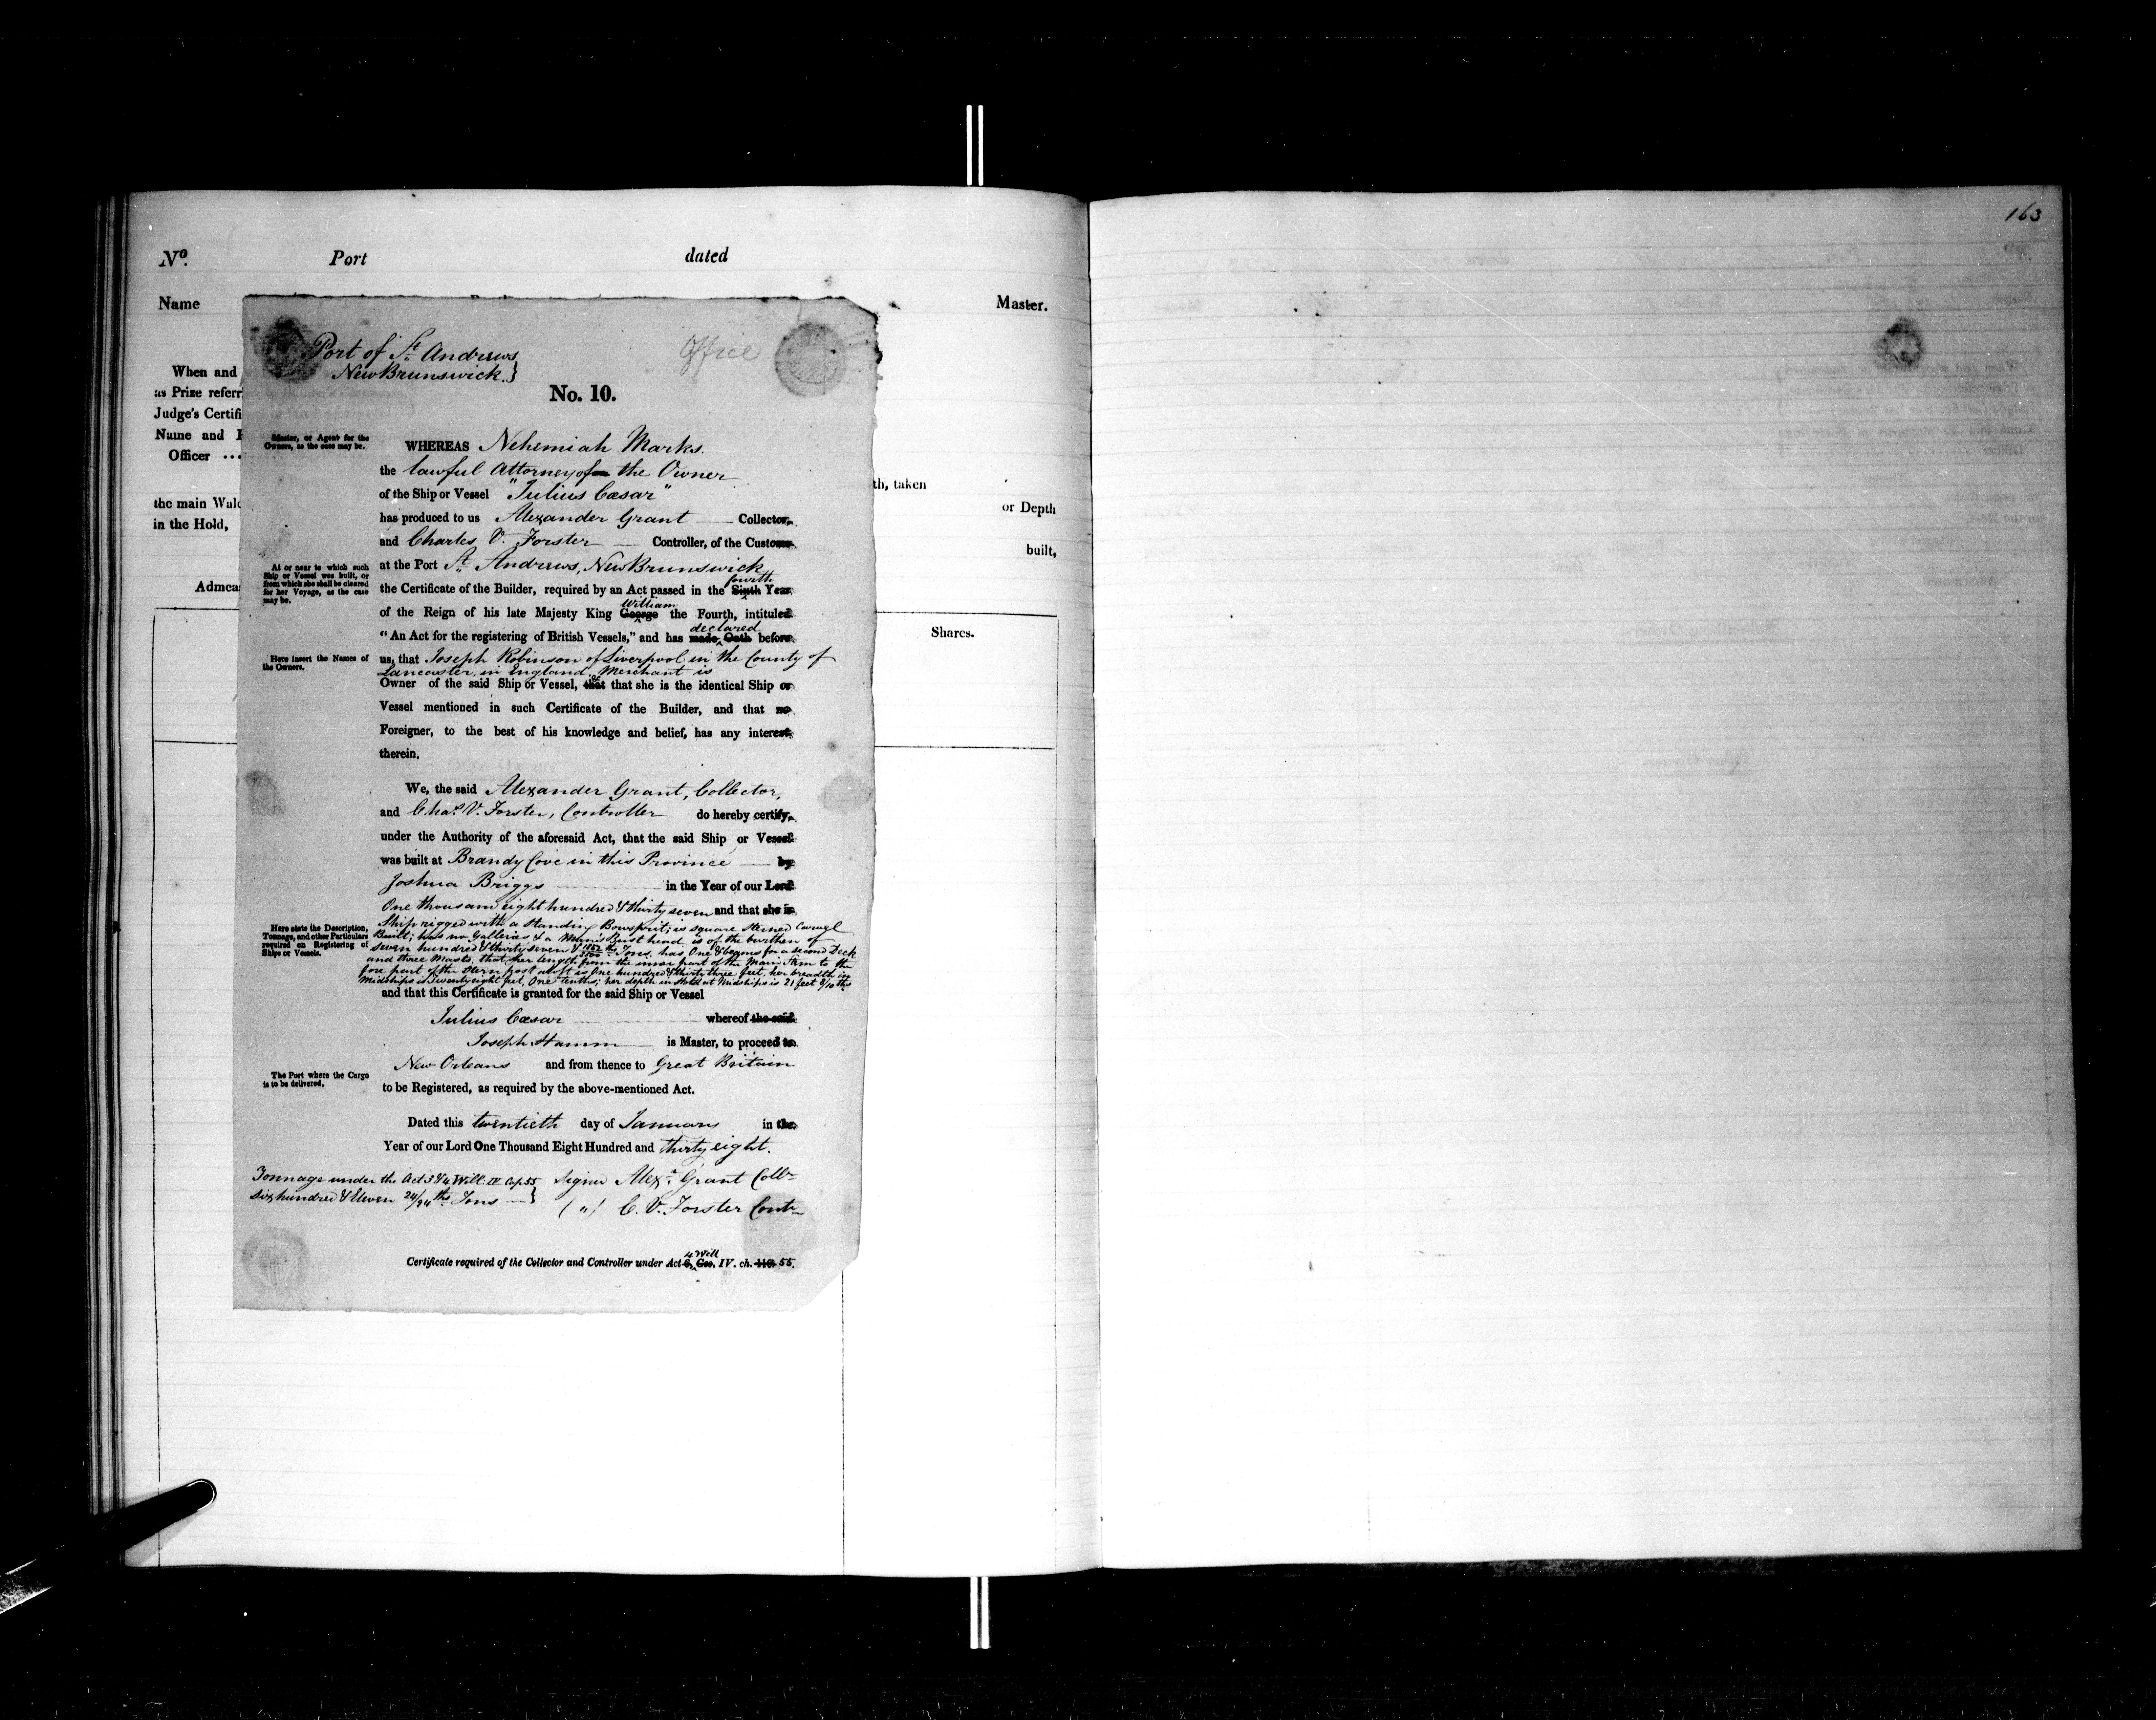 163
No. Port dated
Name Master.
When and
as Prize referr
Judge's Certifi
Name and
Officer ...
th, taken
the main Wale or Depth
in the Hold,
built,
Admea
Shares.
Port of St. Andrews
New Brunswick.}
Office
No. 10.
Master, or Agent for the
Owners, as the case may be.
WHEREAS Nehemiah Marks.
the lawful Attorney of the Owner
of the Ship or Vessel "Julius Cæsar"
has produced to us Alexander Grant — Collector,
and Charles V. Forster — Controller, of the Customs
At or near to which such
Ship or Vessel was built, or
from which she shall be cleared
for her Voyage, as the case
may be.
at the Port St. Andrews, New Brunswick
fourth
the Certificate of the Builder, required by an Act passed in the Sixth Year
William
of the Reign of his late Majesty King George the Fourth, intituled
declared
"An Act for the registering of British Vessels," and has made Oath before
Here insert the Names of
the Owners.
us, that Joseph Robinson of Liverpool in the County of
Lancaster, in England, Merchant is
Owner of the said Ship or Vessel, that that she is the identical Ship or
Vessel mentioned in such Certificate of the Builder, and that no
Foreigner, to the best of his knowledge and belief, has any interest
therein.
We, the said Alexander Grant, Collector,
and Chas. V. Forster, Controller do hereby certify,
under the Authority of the aforesaid Act, that the said Ship or Vessel
was built at Brandy Cove in this Province — by
Joshua Briggs in the Year of our Lord
One thousand eight hundred & thirty seven and that she is
Here state the Description,
Tonnage, and other Particulars
required on Registering of
Ships or Vessels.
Ship rigged with a standing Bowsprit; is square sterned Carvel
Built; has no Galleries & a Man's Bust head is of the burthen of
seven hundred & thirty seven & Tons, has One & beams for a second Deck
and three Masts, that her length from the inner part of the Main Stem to the
fore part of the Stern post aloft is One hundred & thirty three feet, her breadth in
Midships is Twenty eight feet, One tenths; her depth in Hold at Midships is 21 feet 8/10ths
and that this Certificate is granted for the said Ship or Vessel
Julius Cæsar whereof the said
Joseph Hamm is Master, to proceed to
New Orleans and from thence to Great Britain
The Port where the Cargo
is to be delivered.
to be Registered, as required by the above-mentioned Act.
Dated this twentieth day of January in the
Year of our Lord One Thousand Eight Hundred and thirty eight.
Tonnage under the Act 3 & 4 Will. IV Cap. 55
six hundred & Eleven 24/94ths Tons —}
Signed Alexr. Grant Collr
(") C. V. Forster Contr
4 Will
Certificate required of the Collector and Controller under Act 6, Geo. IV. ch. 110. 55.